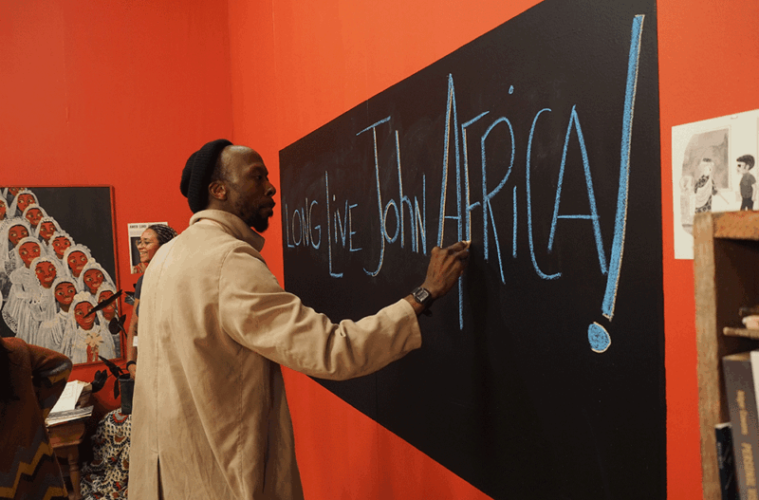 LONG LIVE JohN AFRiCA!